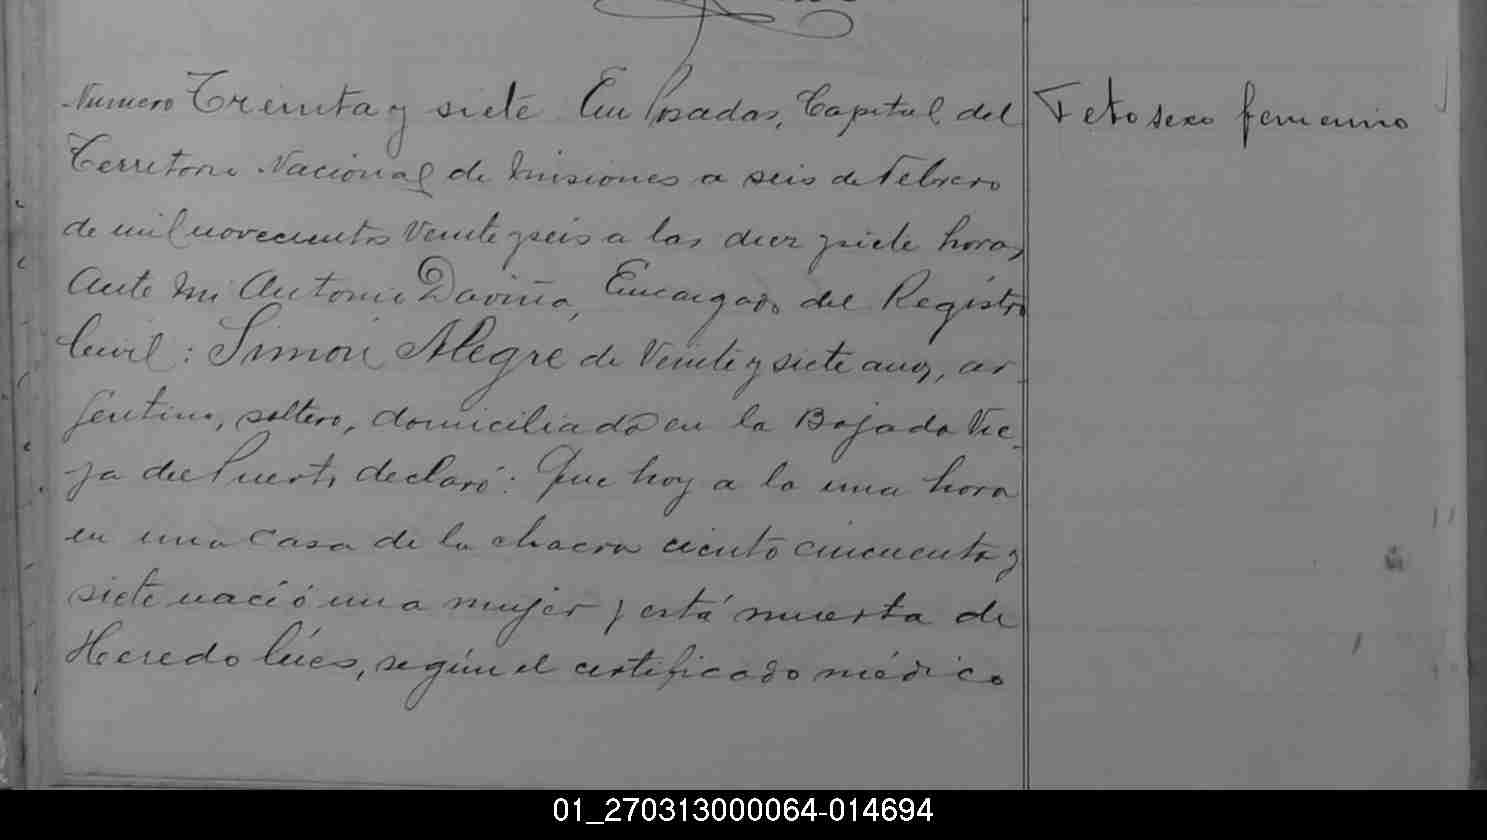 Numero Treinta y siete En Posadas, Capital del
Territorio Nacional de Misiones a seis de Febrero
de mil novecientos veinte y seis a las diez y siete horas,
Ante Mi Antonio Daviña, Encargado del Registro
Civil: Simón Alegre de Veinte y siete años, ar-
gentino, soltero, domiciliado en la Bajada Vie-
ja del Puerto, declaró: Que hoy a la una hora
en una casa de la chacra ciento cincuenta y
siete nació una mujer y está muerta de
Heredo lúes, según el certificado médico
Feto sexo femenino
01_270313000064-014694